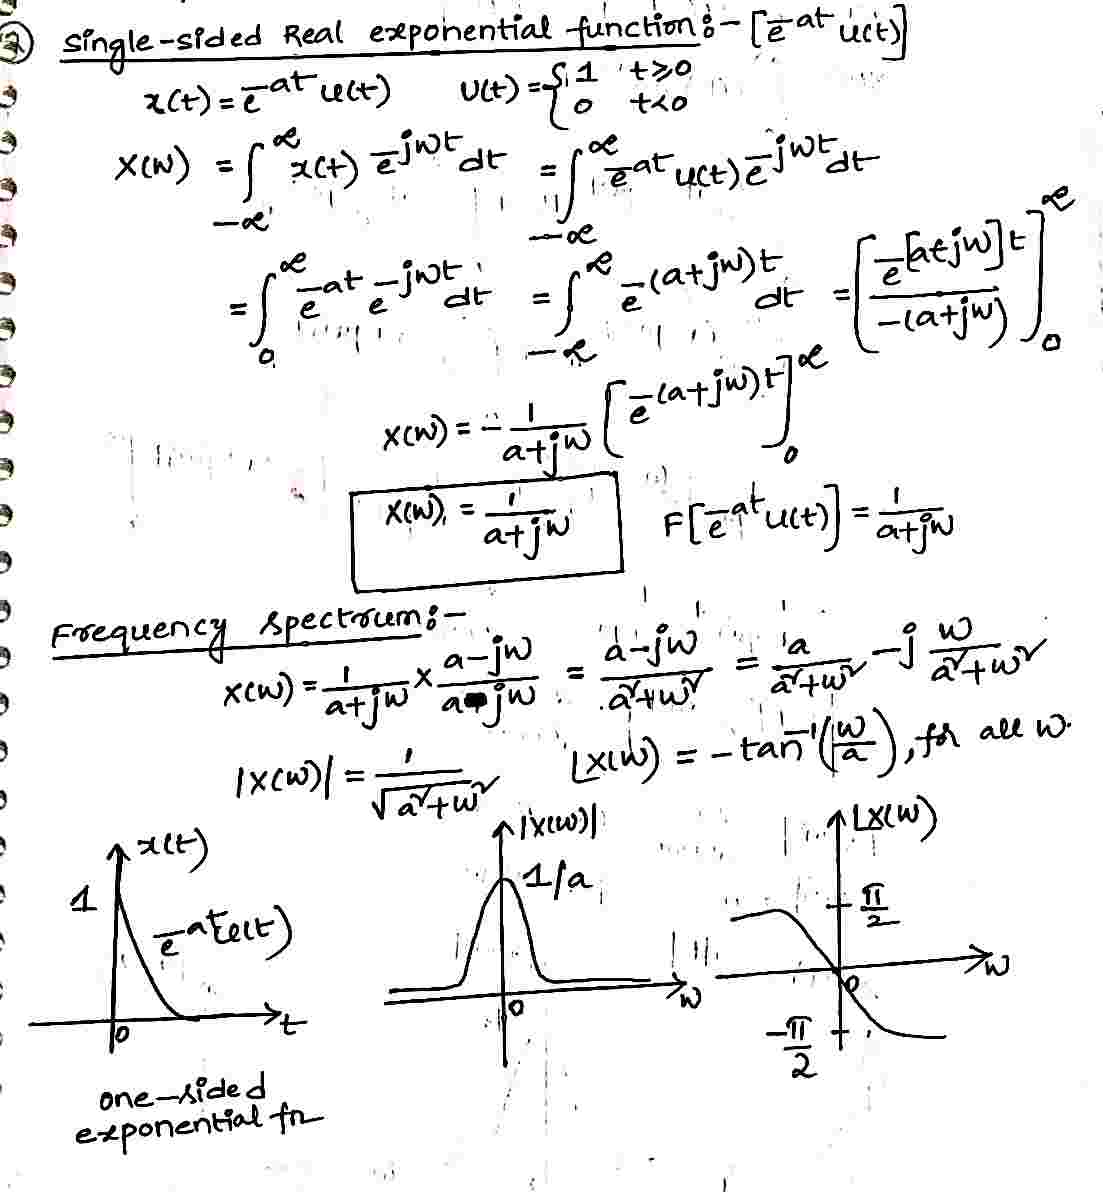 ② Single-sided Real exponential function:- [e^-at u(t)]
x(t) = e^-at u(t)   U(t) = { 1 t≥0
0 t<0
X(w) = ∫_-∞^∞ x(t) e^-jwt dt = ∫_-∞^∞ e^-at u(t) e^-jwt dt
= ∫_0^∞ e^-at e^-jwt dt = ∫_-∞^∞ e^-(a+jw)t dt = [e^-[a+jw]t / -(a+jw)]_0^∞
X(w) = - 1/(a+jw) [e^-(a+jw)t]_0^∞
X(w) = 1/(a+jw)   F[e^-at u(t)] = 1/(a+jw)
Frequency spectrum:-
X(w) = 1/(a+jw) × (a-jw)/(a-jw) = (a-jw)/(a²+w²) = a/(a²+w²) - j w/(a²+w²)
|X(w)| = 1/√(a²+w²)   ∠X(w) = -tan^-1(w/a), for all w.
x(t)
1
e^-at u(t)
0
t
one-sided
exponential fn
|X(w)|
1/a
0
w
∠X(w)
π/2
0
w
-π/2